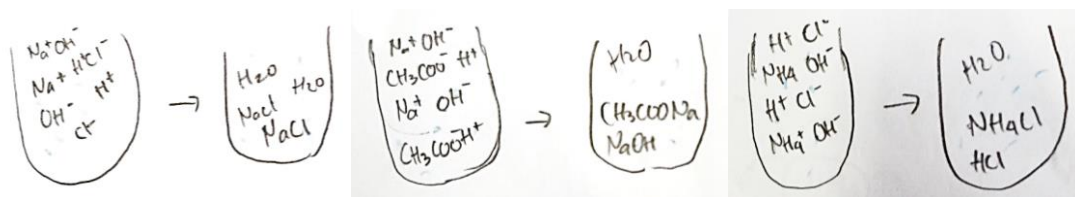 Na⁺OH⁻
Na⁺ H⁺Cl⁻
OH⁻ H⁺
Cl⁻
→
H₂O
H₂O
NaCl
NaCl
Na⁺ OH⁻
CH₃COO⁻ H⁺
Na⁺ OH⁻
CH₃COO⁻H⁺
→
H₂O
CH₃COONa
NaOH
H⁺ Cl⁻
NH₄ OH⁻
H⁺ Cl⁻
NH₄⁺ OH⁻
→
H₂O
NH₄Cl
HCl